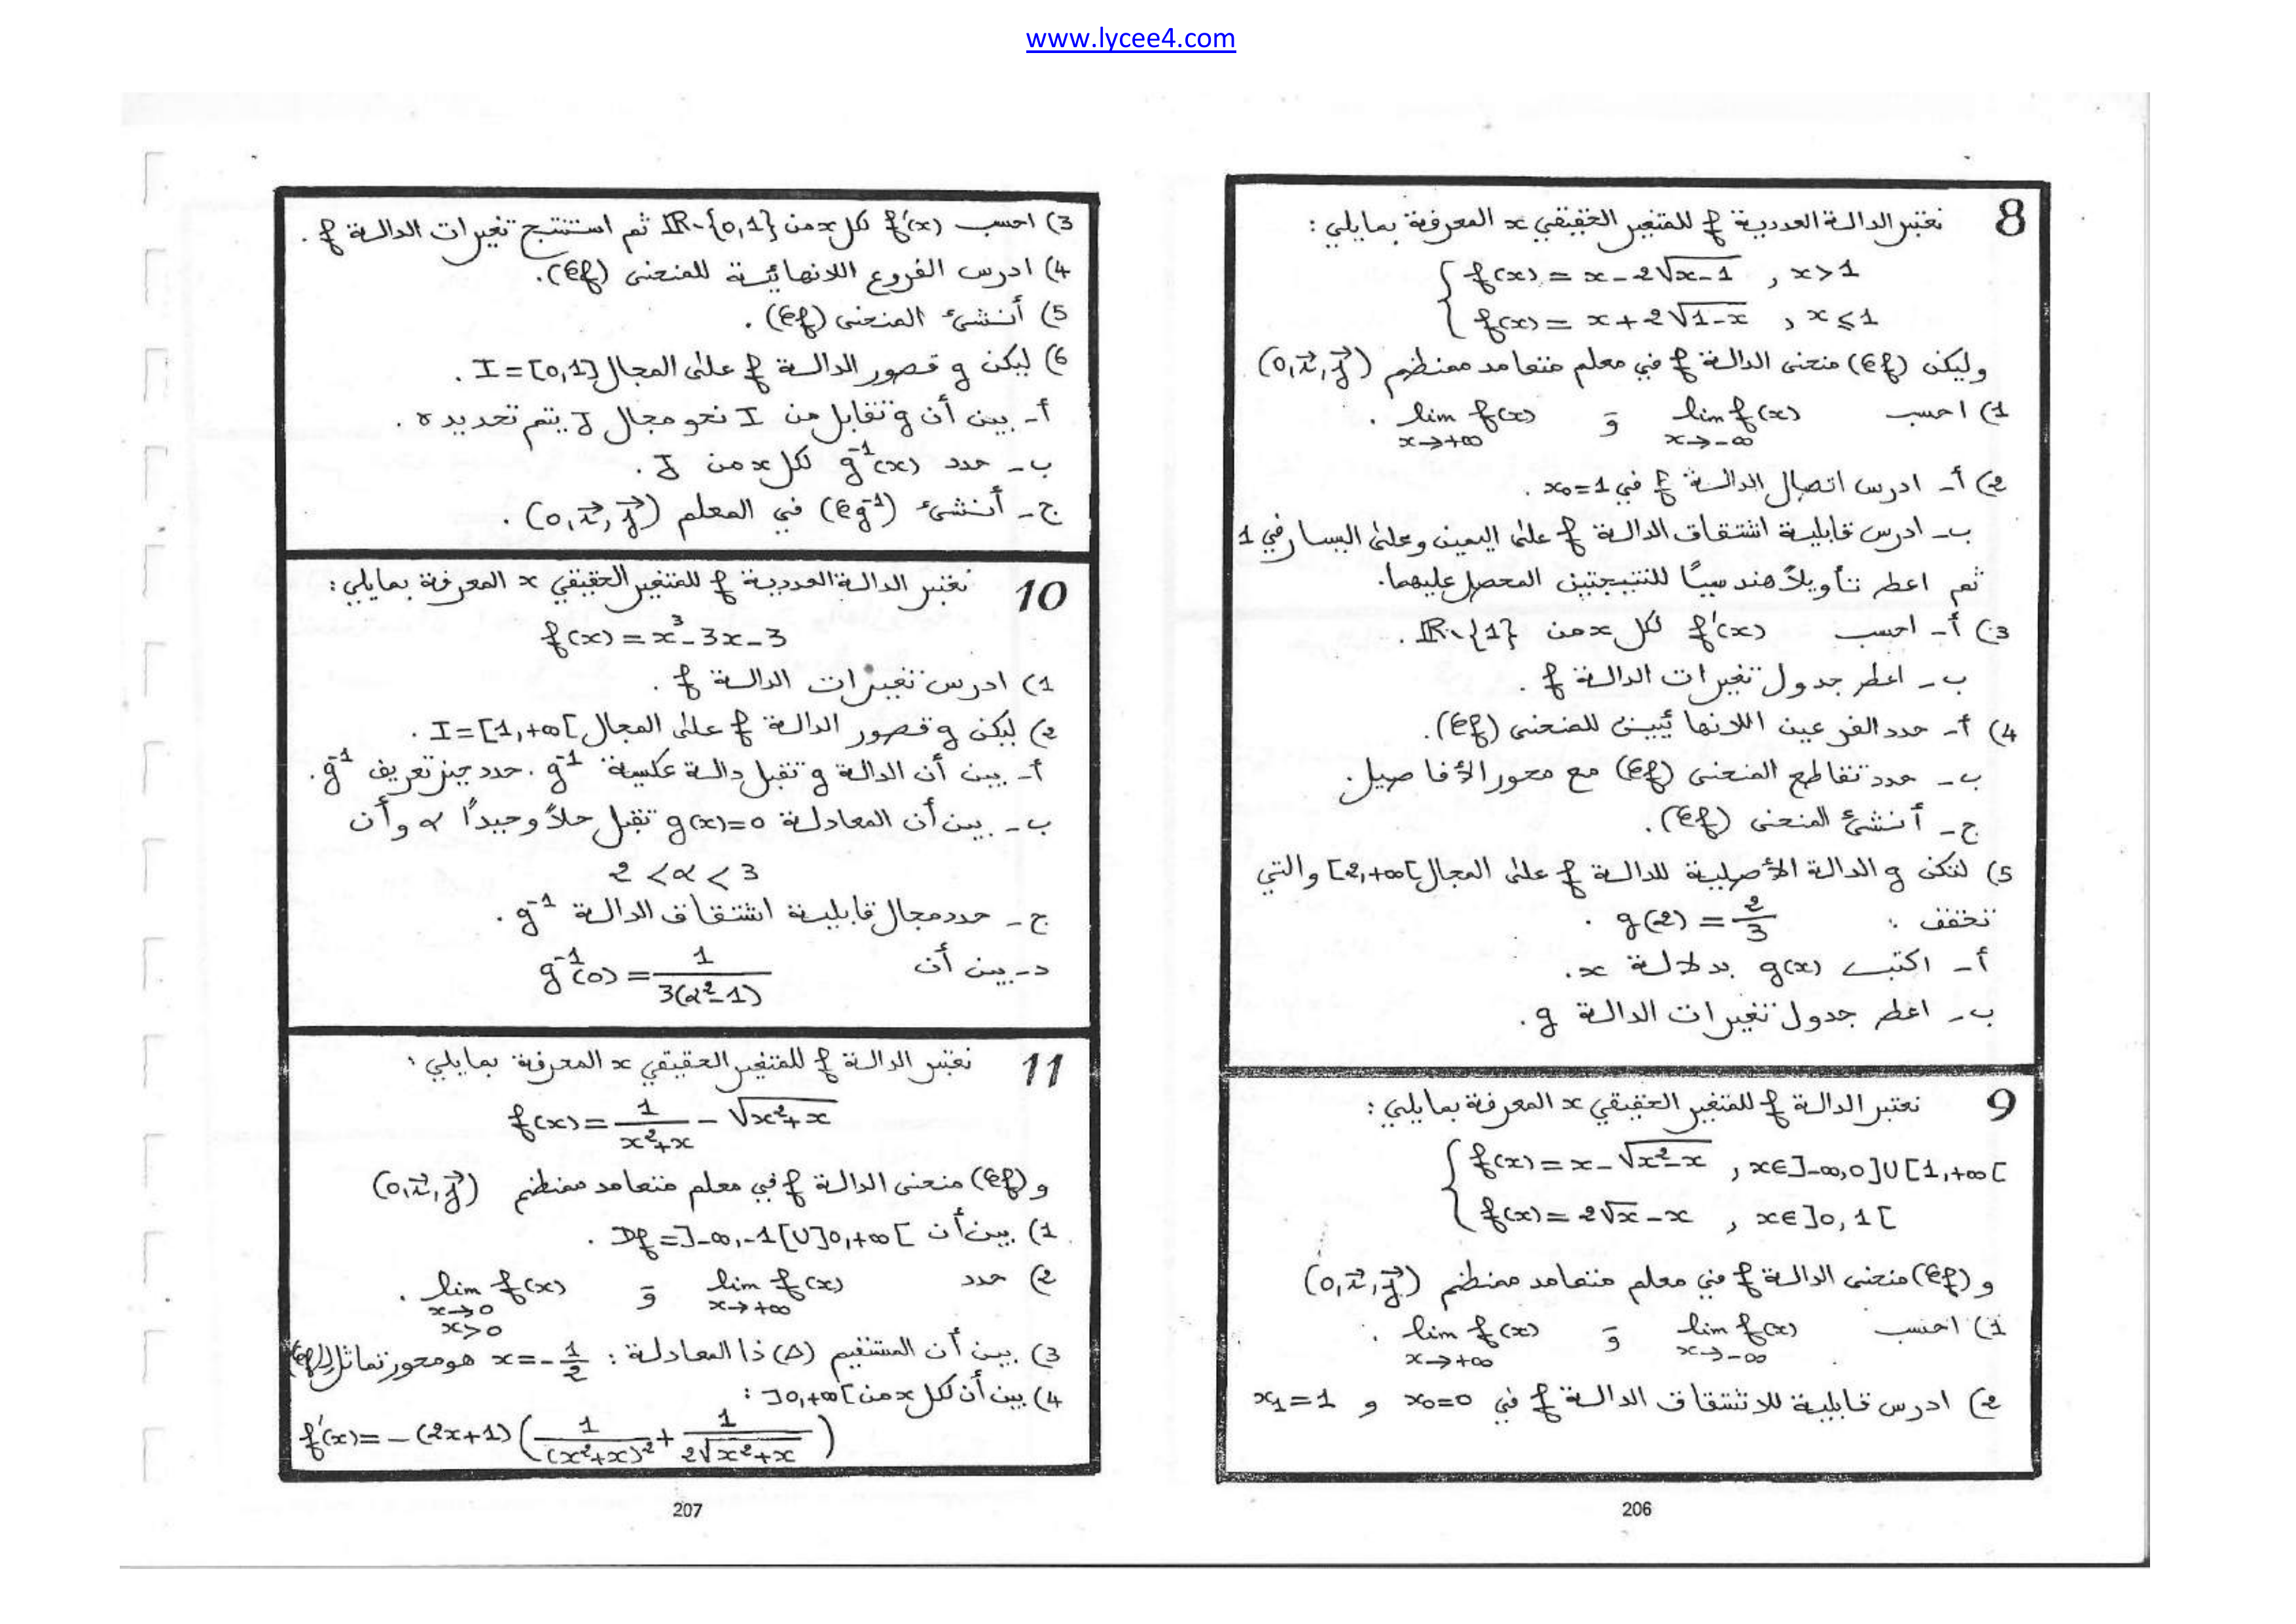 www.lycee4.com
8 نعتبر الدالة العددية f للمتغير الحقيقي x المعرفة بمايلي :
f(x) = x - 2√(x-1) , x > 1
f(x) = x + 2√(1-x) , x ≤ 1
وليكن (Cf) منحنى الدالة f في معلم متعامد ممنظم (0, i⃗, j⃗)
1) احسب lim f(x) x→-∞ و lim f(x) x→+∞ .
2) أ- ادرس اتصال الدالة f في x₀=1 .
ب- ادرس قابلية اشتقاق الدالة f على اليمين وعلى اليسار في 1
ثم اعط تأويلاً هندسياً للنتيجتين المحصل عليهما.
3) أ- احسب f'(x) لكل x من ℝ∖{1} .
ب- اعط جدول تغيرات الدالة f .
4) أ- حدد الفرعين اللانهائيين للمنحنى (Cf).
ب- حدد تقاطع المنحنى (Cf) مع محور الأفاصيل.
ج- أنشئ المنحنى (Cf).
5) لتكن g الدالة الأصلية للدالة f على المجال [2,+∞[ والتي
تحقق : g(2) = 2/3 .
أ- اكتب g(x) بدلالة x.
ب- اعط جدول تغيرات الدالة g .
9 نعتبر الدالة f للمتغير الحقيقي x المعرفة بمايلي :
f(x) = x - √(x²-x) , x∈]-∞,0]∪[1,+∞[
f(x) = 2√x - x , x∈]0,1[
و (Cf) منحنى الدالة f في معلم متعامد ممنظم (0, i⃗, j⃗)
1) احسب lim f(x) x→-∞ و lim f(x) x→+∞ .
2) ادرس قابلية للاشتقاق الدالة f في x₀=0 و x₁=1
206
3) احسب f'(x) لكل x من ℝ∖{0,1} ثم استنتج تغيرات الدالة f .
4) ادرس الفروع اللانهائية للمنحنى (Cf).
5) أنشئ المنحنى (Cf) .
6) ليكن g قصور الدالة f على المجال I=[0,1] .
أ- بين أن g تقابل من I نحو مجال J يتم تحديده .
ب- حدد g⁻¹(x) لكل x من J .
ج- أنشئ (Cg⁻¹) في المعلم (0, i⃗, j⃗) .
10 نعتبر الدالة العددية f للمتغير الحقيقي x المعرفة بمايلي :
f(x) = x³-3x-3
1) ادرس تغيرات الدالة f .
2) ليكن g قصور الدالة f على المجال I=[1,+∞[ .
أ- بين أن الدالة g تقبل دالة عكسية g⁻¹ . حدد حيز تعريف g⁻¹.
ب- بين أن المعادلة g(x)=0 تقبل حلاً وحيداً α وأن
2 < α < 3
ج- حدد مجال قابلية اشتقاق الدالة g⁻¹ .
د- بين أن g⁻¹'(0) = 1/(3(α²-1))
11 نعتبر الدالة f للمتغير الحقيقي x المعرفة بمايلي :
f(x) = 1/(x²+x) - √(x²+x)
و (Cf) منحنى الدالة f في معلم متعامد ممنظم (0, i⃗, j⃗)
1) بين أن Df = ]-∞,-1[∪]0,+∞[ .
2) حدد lim f(x) x→+∞ و lim f(x) x→0 x>0 .
3) بين أن المستقيم (Δ) ذا المعادلة : x = -1/2 هو محور تماثل لـ(Cf)
4) بين أن لكل x من ]0,+∞[ :
f'(x) = -(2x+1)(1/(x²+x)² + 1/(2√(x²+x)))
207